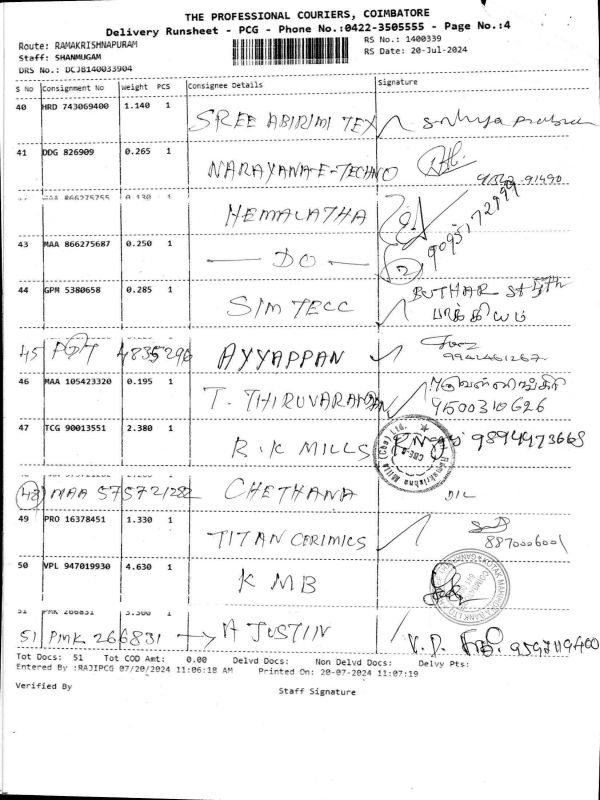 THE PROFESSIONAL COURIERS, COIMBATORE
Delivery Runsheet - PCG - Phone No.:0422-3505555 - Page No.:4
Route: RAMAKRISHNAPURAM
RS No.: 1400339
Staff: SHANMUGAM
RS Date: 20-Jul-2024
DRS No.: DCJB140033904
S No Consignment No Weight PCS Consignee Details Signature
40 HRD 743069400 1.140 1 SREE ABIRIMI TEX
41 DDG 826909 0.265 1 NARAYANA-E-TECHNO
MAA 866275755 0.130 1 HEMALATHA
9095172799
43 MAA 866275687 0.250 1 — DO — 2
44 GPM 5380658 0.285 1 SIM TECC BUTHAR St
45 PGM 4835296 AYYAPPAN
9941461267
46 MAA 105423320 0.195 1 T. THIRUVARANGAN
9500310626
47 TCG 90013551 2.380 1 R.K MILLS 9894473668
48 MAA 575721282 CHETHANA D/L
49 PRO 16378451 1.330 1 TITAN CERIMICS
8870006001
50 VPL 947019930 4.630 1 K MB
51 PMK 266831 3.300 1
51 PMK 266831 → A JUSTIN V. P.
Tot Docs: 51 Tot COD Amt: 0.00 Delvd Docs: Non Delvd Docs: Delvy Pts:
Entered By :RAJIPCG 07/20/2024 11:06:18 AM Printed On: 20-07-2024 11:07:19
Verified By
Staff Signature